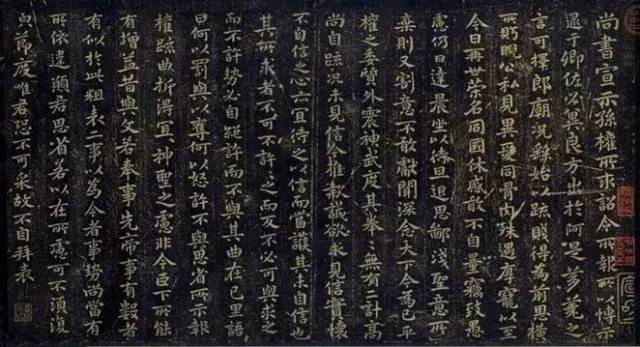 尚書宣示孫權所求詔令所報所以博示
逮于卿佐必冀良方出於阿是芻蕘之
言可擇郎廟況繇始以疏賤得為前恩橫
所盱睨公私見異愛同骨肉殊遇厚寵以至
今日再世榮名同國休慼敢不自量竊致愚
慮仍日達晨坐以待旦退思鄙淺聖意所
棄則又割意不敢獻聞深念天下今為已平
權之委質外震神武度其拳〻無有二計高
尚自疏況未見信今推款誠欲求見信實懷
不自信之心亦宜待之以信而當護其未自信也
其所求者不可不許〻之而反不必可與求之
而不許勢必自絕許而不與其曲在己里語
曰何以罰與以奪何以怒許不與思省所示報
權疏曲折得宜〻神聖之慮非今臣下所能
有增益昔與文若奉事先帝事有數者
有似於此粗表二事以為今者事勢尚當有
所依違願君思省若以在所慮可不須復
白節度唯君恐不可采故不自拜表